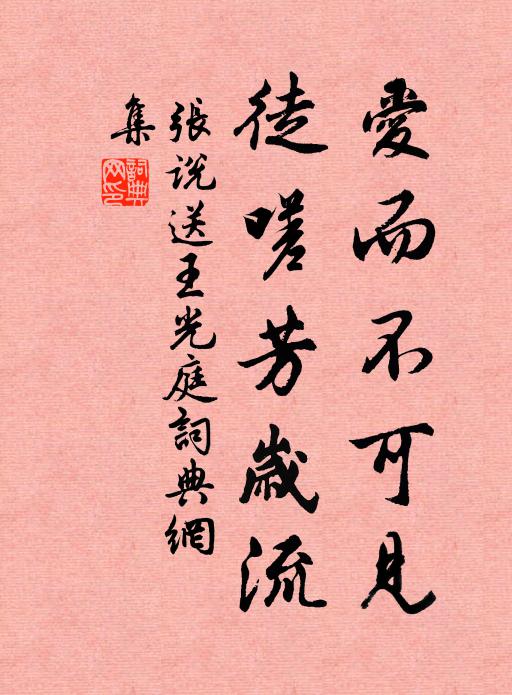 愛而不可見
徒嗟芳歲流
張說送王光庭詞典網
集
詞典
网印